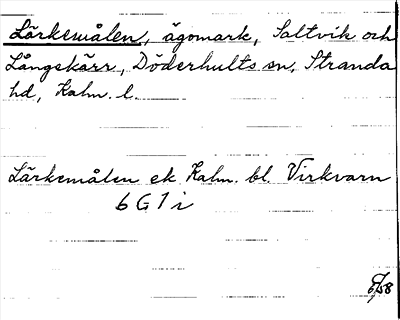 Lärkemålen, ägomark, Saltvik och
Långskärr, Döderhults sn, Stranda
hd, Kalm. l.
Lärkemålen ek Kalm. bl. Virkvarn
6 G 1 i
6/58